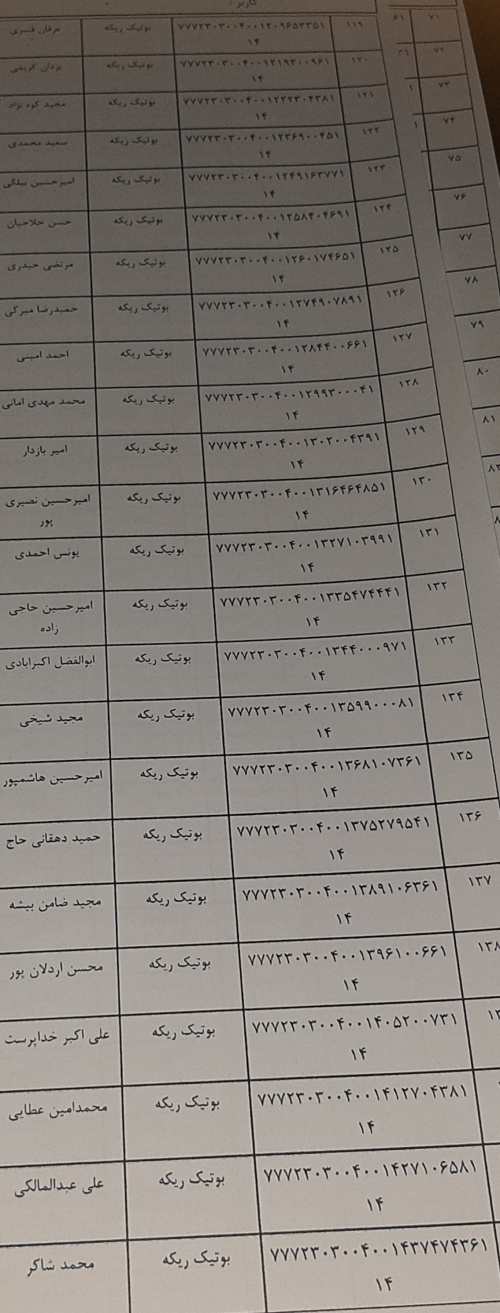 کاربر :
۷۱
۱۱۹ ۷۷۷۲۳۰۳۰۰۴۰۰۱۲۰۹۶۵۳۳۵۱ بوتیک ریکه عرفان قنبری
۱۴
۷۲
۱۲۰ ۷۷۷۲۳۰۳۰۰۴۰۰۱۲۱۹۳۰۰۹۶۱ بوتیک ریکه یزدان کریمی
۱۴
۷۳
۱۲۱ ۷۷۷۲۳۰۳۰۰۴۰۰۱۲۲۲۳۰۴۳۸۱ بوتیک ریکه مجید کوه نژاد
۱۴
۷۴
۱۲۲ ۷۷۷۲۳۰۳۰۰۴۰۰۱۲۳۶۹۰۰۴۵۱ بوتیک ریکه سعید محمدی
۱۴
۷۵
۱۲۳ ۷۷۷۲۳۰۳۰۰۴۰۰۱۲۴۹۱۶۳۷۷۱ بوتیک ریکه امیرحسین بیلکی
۱۴
۷۶
۱۲۴ ۷۷۷۲۳۰۳۰۰۴۰۰۱۲۵۸۴۰۴۶۹۱ بوتیک ریکه حسن حلاجیان
۱۴
۷۷
۱۲۵ ۷۷۷۲۳۰۳۰۰۴۰۰۱۲۶۰۱۷۴۶۵۱ بوتیک ریکه مرتضی حیدری
۱۴
۷۸
۱۲۶ ۷۷۷۲۳۰۳۰۰۴۰۰۱۲۷۴۹۰۷۸۹۱ بوتیک ریکه حمیدرضا میرکی
۱۴
۷۹
۱۲۷ ۷۷۷۲۳۰۳۰۰۴۰۰۱۲۸۴۴۰۰۶۶۱ بوتیک ریکه احمد امینی
۱۴
۸۰
۱۲۸ ۷۷۷۲۳۰۳۰۰۴۰۰۱۲۹۹۳۰۰۰۴۱ بوتیک ریکه محمد مهدی امانی
۱۴
۸۱
۱۲۹ ۷۷۷۲۳۰۳۰۰۴۰۰۱۳۰۲۰۰۴۳۹۱ بوتیک ریکه امیر بازدار
۱۴
۱۳۰ ۷۷۷۲۳۰۳۰۰۴۰۰۱۳۱۶۴۶۴۸۵۱ بوتیک ریکه امیرحسین نصیری
۱۴ پور
۱۳۱ ۷۷۷۲۳۰۳۰۰۴۰۰۱۳۲۷۱۰۳۹۹۱ بوتیک ریکه یونس احمدی
۱۴
۱۳۲ ۷۷۷۲۳۰۳۰۰۴۰۰۱۳۳۵۴۷۴۴۴۱ بوتیک ریکه امیرحسین حاجی
۱۴ زاده
۱۳۳ ۷۷۷۲۳۰۳۰۰۴۰۰۱۳۴۴۰۰۰۹۷۱ بوتیک ریکه ابوالفضل اکبرابادی
۱۴
۱۳۴ ۷۷۷۲۳۰۳۰۰۴۰۰۱۳۵۹۹۰۰۰۸۱ بوتیک ریکه مجید شیخی
۱۴
۱۳۵ ۷۷۷۲۳۰۳۰۰۴۰۰۱۳۶۸۱۰۷۳۶۱ بوتیک ریکه امیرحسین هاشمپور
۱۴
۱۳۶ ۷۷۷۲۳۰۳۰۰۴۰۰۱۳۷۵۲۷۹۵۴۱ بوتیک ریکه حمید دهقانی حاج
۱۴
۱۳۷ ۷۷۷۲۳۰۳۰۰۴۰۰۱۳۸۹۱۰۶۳۶۱ بوتیک ریکه مجید ضامن بیشه
۱۴
۱۳۸ ۷۷۷۲۳۰۳۰۰۴۰۰۱۳۹۶۱۰۰۶۶۱ بوتیک ریکه محسن اردلان پور
۱۴
۷۷۷۲۳۰۳۰۰۴۰۰۱۴۰۵۲۰۰۷۳۱ بوتیک ریکه علی اکبر خداپرست
۱۴
۷۷۷۲۳۰۳۰۰۴۰۰۱۴۱۲۷۰۴۳۸۱ بوتیک ریکه محمدامین عطایی
۱۴
۷۷۷۲۳۰۳۰۰۴۰۰۱۴۲۷۱۰۶۵۸۱ بوتیک ریکه علی عبدالمالکی
۱۴
۷۷۷۲۳۰۳۰۰۴۰۰۱۴۳۷۴۷۴۳۶۱ بوتیک ریکه محمد شاکر
۱۴